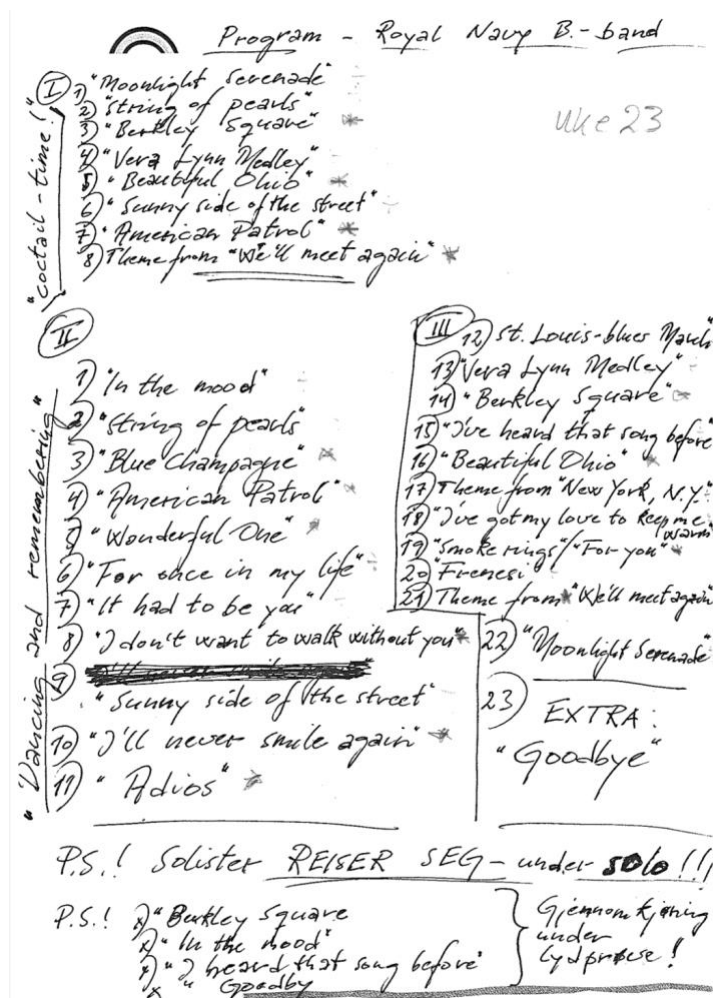 Program - Royal Navy B.-band
Uke 23
"coctail-time!"
I
1) "Moonlight Serenade"
2) "String of pearls"
3) "Berkley Square" *
4) "Vera Lynn Medley"
5) "Beautiful Ohio" *
6) "Sunny side of the street"
7) "American Patrol" *
8) Theme from "We'll meet again" *
II
"Dancing and remembering"
1) "In the mood"
2) "String of pearls"
3) "Blue Champagne" *
4) "American Patrol" *
5) "Wonderful One" *
6) "For once in my life"
7) "It had to be you"
8) "I don't want to walk without you" *
9)
"Sunny side of the street"
10) "I'll never smile again" *
11) "Adios" *
III
12) St. Louis-blues March"
13) "Vera Lynn Medley"
14) "Berkley Square" *
15) "I've heard that song before"
16) "Beautiful Ohio" *
17) Theme from "New York, N.Y."
18) "I've got my love to keep me
warm"
19) "Smoke rings"/"For you" *
20) "Frenesi"
21) Theme from * "We'll meet again"
22) "Moonlight Serenade"
23) EXTRA:
"Goodbye"
P.S.! Solister REISER SEG - under solo!!!
P.S.! x) "Berkley Square
x) "In the mood"
x) "I heard that song before"
x "Goodby
Gjennomkjøring
under
lydprøvse!